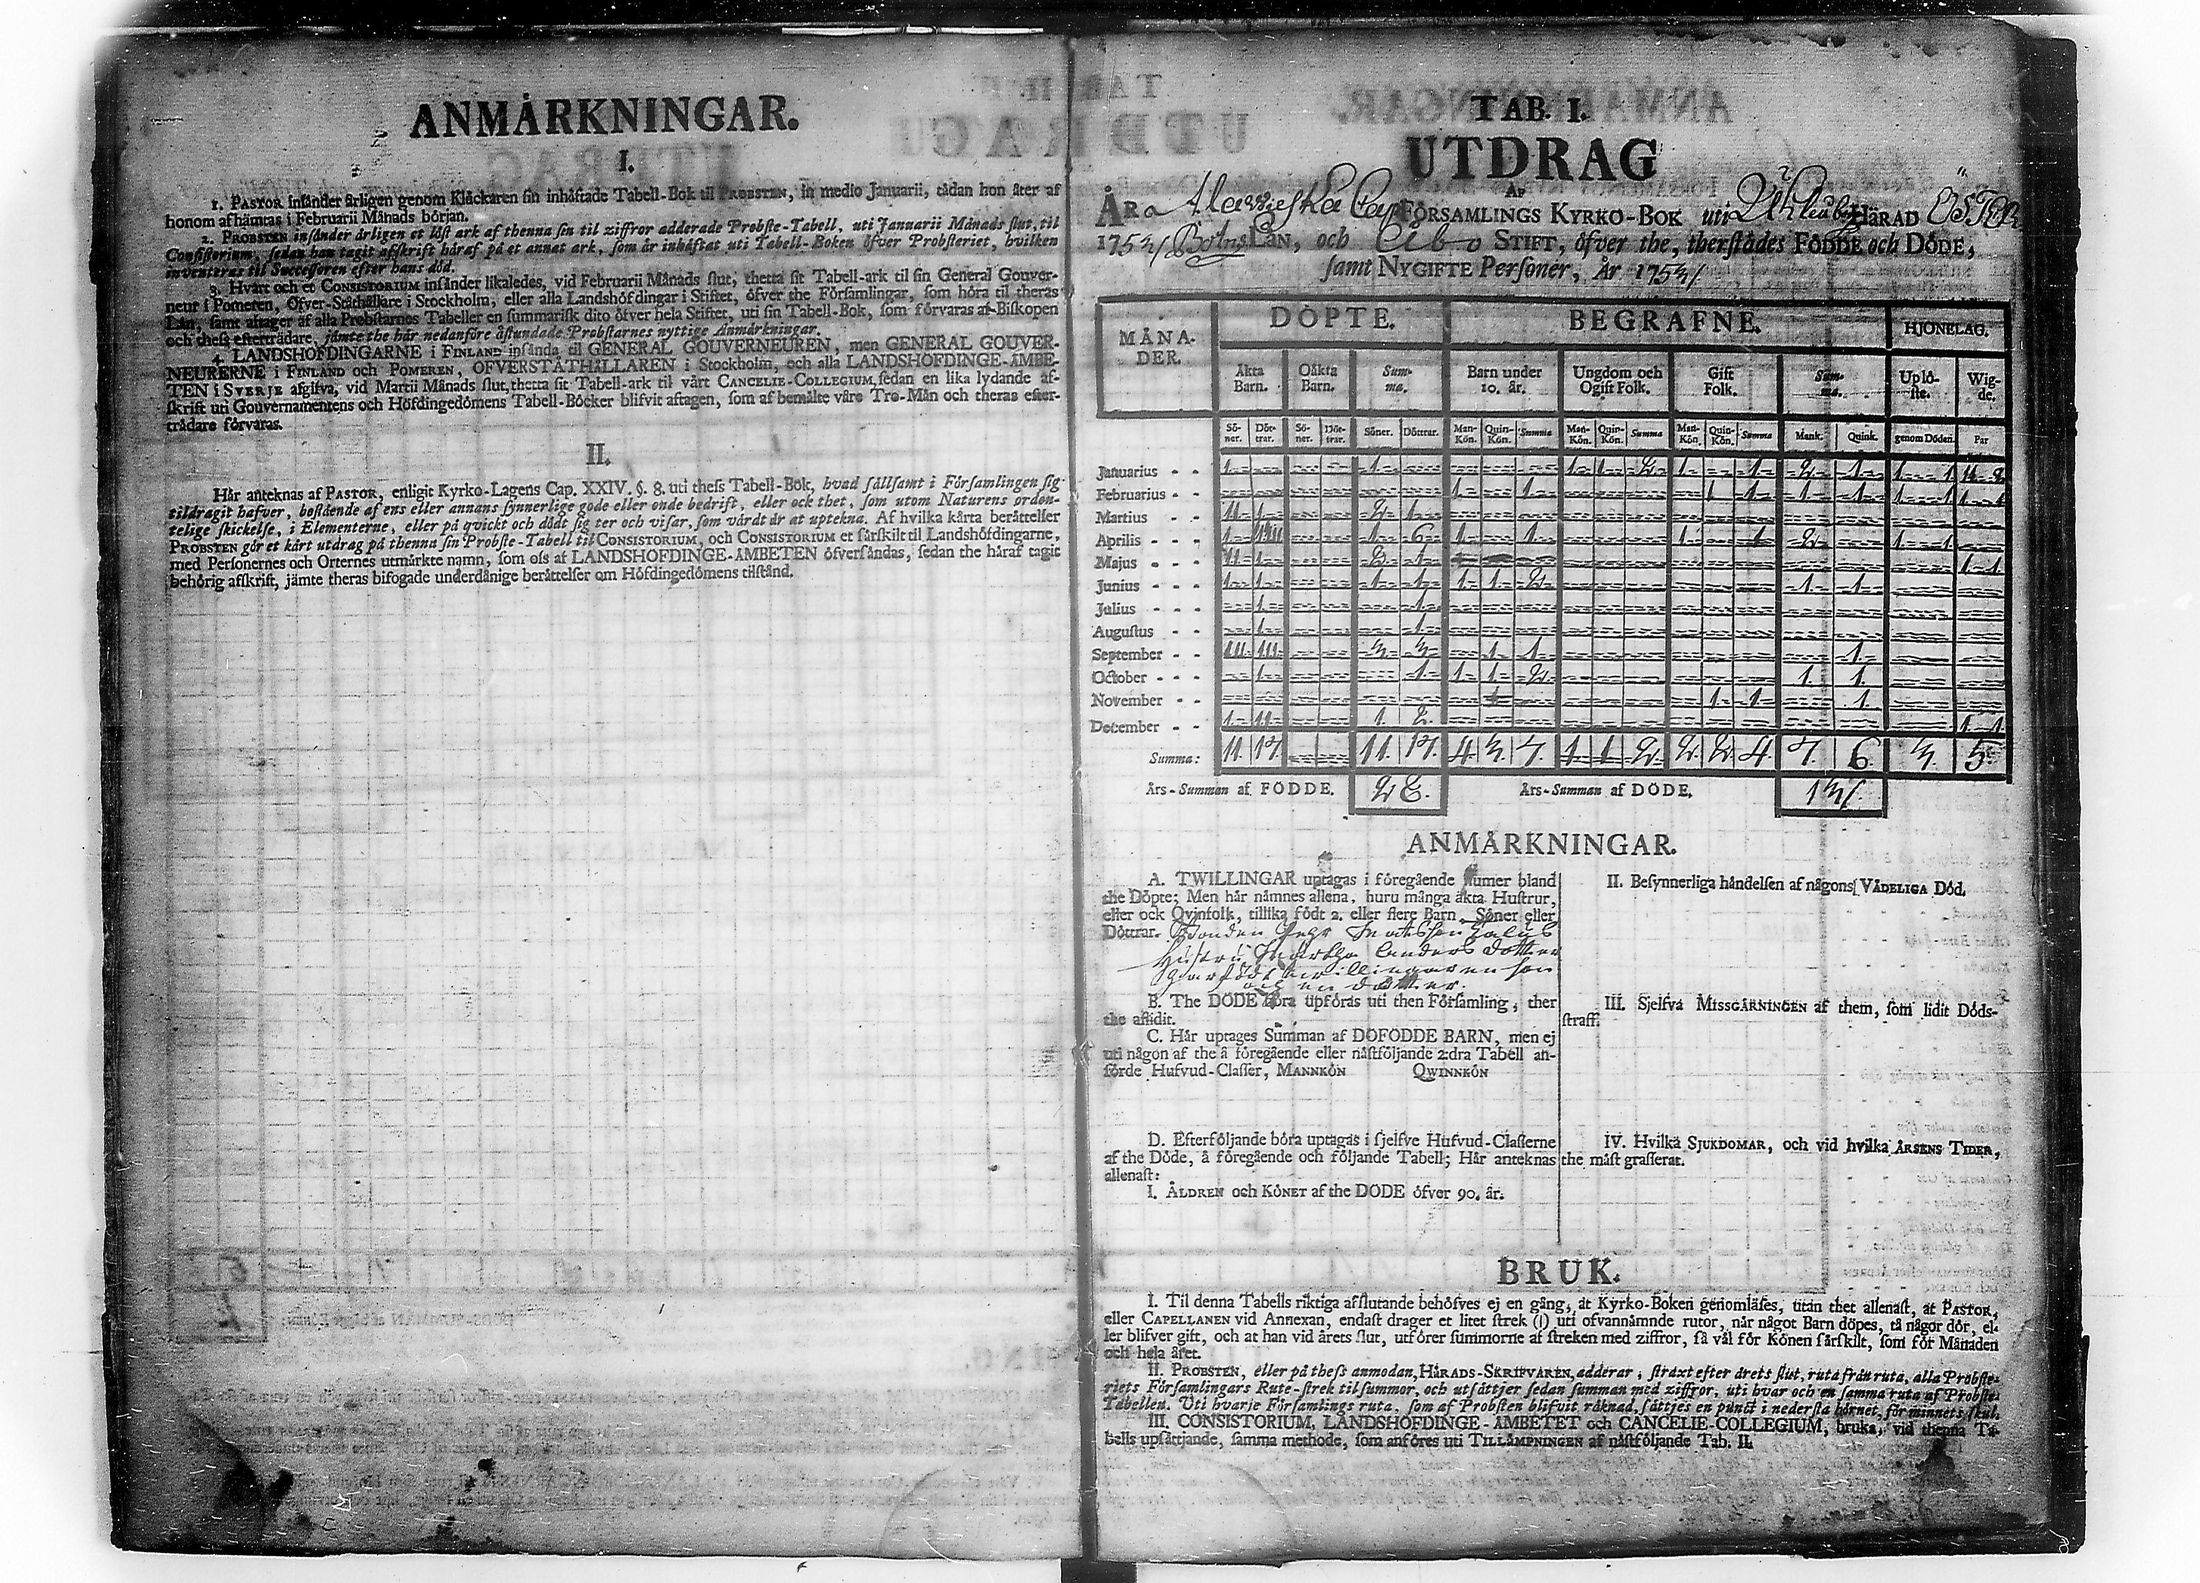 ANMÅRKNINGAR.
I.
1. PASTOR infånder årligen genom Klåckaren fin inhåftade Tabell-Bok til PROBSTEN, in medio Januarii, tådan hon åter af
honom afhåmtas i Februarii Månads början.
2. PROBSTEN infånder årligen et löst ark af thenna fin til ziffror adderade Probste-Tabell, uti Januarii Månads slut, til
Consistorium, sedan han tagit afskrift håraf på et annat ark, som år inhåftat uti Tabell-Boken öfver Probsteriet, hvilken
inventeras til Successoren efter hans död.
3. Hvart och et CONSISTORIUM infånder likaledes, vid Februarii Månads slut, thetta sit Tabell-ark til sin General Gouver-
neur i Pomeren, Öfver-Ståthållare i Stockholm, eller alla Landshöfdingar i Stiftet, öfver the Församlingar, som höra til theras
Lån, samt aftager af alla Probstarnes Tabeller en summarisk dito öfver hela Stiftet, uti sin Tabell-Bok, som förvaras af Biskopen
och thess efterträdare, jämte the hår nedanföre åstundade Probstarnes nyttige Anmårkningar.
4. LANDSHÖFDINGARNE i FINLAND insånda til GENERAL GOUVERNEUREN, men GENERAL GOUVER-
NEURERNE i FINLAND och POMEREN, ÖFVERSTÅTHÅLLAREN i Stockholm, och alla LANDSHÖFDINGE-ÅMBE-
TEN i SVERJE afgifva, vid Martii Månads slut, thetta sit Tabell-ark til vårt CANCELIE-COLLEGIUM, sedan en lika lydande af-
skrift uti Gouvernamentens och Höfdingedömens Tabell-Böcker blifvit aftagen, som af bemålte våre Tro-Mån och theras efter-
trådare förvaras.
II.
Hår anteknas af PASTOR, enligit Kyrko-Lagens Cap. XXIV. §. 8. uti thess Tabell-Bok, hvad sållsamt i Församlingen sig
tildragit hafver, bestående af ens eller annans synnerlige gode eller onde bedrift, eller ock thet, som utom Naturens orden-
telige skickelse, i Elementerne, eller på qvickt och dödt sig ter och visar, som vårdt år at uptekna. Af hvilka kårta beråttelser
PROBSTEN gör et kårt utdrag på thenna sin Probste-Tabell til CONSISTORIUM, och CONSISTORIUM et sårskilt til Landshöfdingarne,
med Personernes och Orternes utmårkte namn, som oss af LANDSHÖFDINGE-ÅMBETEN öfversåndas, sedan the håraf tagit
behörig afskrift, jämte theras bifogade underdånige beråttelser om Höfdingedömens tilstånd.
TAB. I.
UTDRAG
AF
ÅR Alawieska Cap FÖRSAMLINGS KYRKO-BOK uti HÄRAD ÖsTer
1753/ Botns LÅN, och Åbo STIFT, öfver the, therstådes FÖDDE och DÖDE,
samt NYGIFTE Personer, År 1753/
MÅNA-
DER. DÖPTE. BEGRAFNE. HJONELAG.
Åkta Barn. Oåkta Barn. Sum-ma. Barn under 10. år. Ungdom och Ogift Folk. Gift Folk. Sum-ma. Uplö-ste. Wig-de.
Sö-ner. Döt-trar. Sö-ner. Döt-trar. Söner. Döttrar. Man-Kön. Quin-Kön. Summa Man-Kön. Quin-Kön. Summa Man-Kön. Quin-Kön. Summa Mank. Quink. genom Döden. Par
Januarius - - 1 1 1 1 2 1 1 2 1 1 1 11 2
Februarius - - 1 1 1 1 1 1 1 1 1 1
Martius - - 11 1 2 1
Aprilis - - 1 6 1 1 1 1 2 1 1
Majus - - 11 1 2 1 1 1
Junius - - - 1 1 1 1 1 1 2 1 1
Julius - - - 1 1
Augustus - - 1 1
September - - 111 111 3 3 1 1 1
October - - - 1 1 1 1 2 1 1
November - - 1 1 1
December - - 1 11 1 2 1 1
Summa: 11. 17. 11. 17. 4 3 7. 1 1 2 2 2 4 7. 6 3. 5
Års-Summan af FÖDDE. 28. Års-Summan af DÖDE. 13/
ANMÅRKNINGAR.
A. TWILLINGAR uptagas i föregående Numer bland
the Döpte; Men hår nåmnes allena, huru många åkta Hustrur,
eller ock Qvinfolk, tillika födt 2. eller flere Barn, Söner eller
Döttrar. Bonden
Hustru Anders Dotter
har födt twillingar en son
och en dotter.
B. The DÖDE böra upföras uti then Församling, ther
the aflidit.
C. Hår uptages Summan af DÖFÖDDE BARN, men ej
uti någon af the å föregående eller nåstföljande 2:dra Tabell an-
förde Hufvud-Classer, MANNKÖN QWINNKÖN
D. Efterföljande böra uptagas i sjelfve Hufvud-Classerne
af the Döde, å föregående och följande Tabell; Hår anteknas
allenast:
I. ÅLDREN och KÖNET af the DÖDE öfver 90. år.
II. Besynnerliga håndelsen af någons VÅDELIGA Död.
III. Sjelfva MISSGÅRNINGEN af them, som lidit Döds-
straff.
IV. Hvilka SJUKDOMAR, och vid hvilka ÅRSENS TIDER,
the måst grasserat.
BRUK.
I. Til denna Tabells riktiga afslutande behöfves ej en gång, at Kyrko-Boken genomläses, utan thet allenast, at PASTOR,
eller CAPELLANEN vid Annexan, endast drager et litet strek (|) uti ofvannåmnde rutor, når något Barn döpes, tå någor dör, el-
ler blifver gift, och at han vid årets slut, utförer summorne af streken med ziffror, så vål för Könen sårskilt, som för Månaden
och hela året.
II. PROBSTEN, eller på thess anmodan, HÅRADS-SKRIFVAREN, adderar, straxt efter årets slut, ruta från ruta, alla Probste-
riets Församlingars Rute-strek til summor, och utsåttjer sedan summan med ziffror, uti hvar och en samma ruta af Probste-
Tabellen. Uti hvarje Församlings ruta, som af Probsten blifvit råknad, såttjes en punct i nedersta hörnet, för minnets skul.
III. CONSISTORIUM, LANDSHÖFDINGE-ÅMBETET och CANCELIE-COLLEGIUM, bruka, vid thenna Ta-
bells upsåttjande, samma methode, som anföres uti TILLÅMPNINGEN af nåstföljande Tab. II.